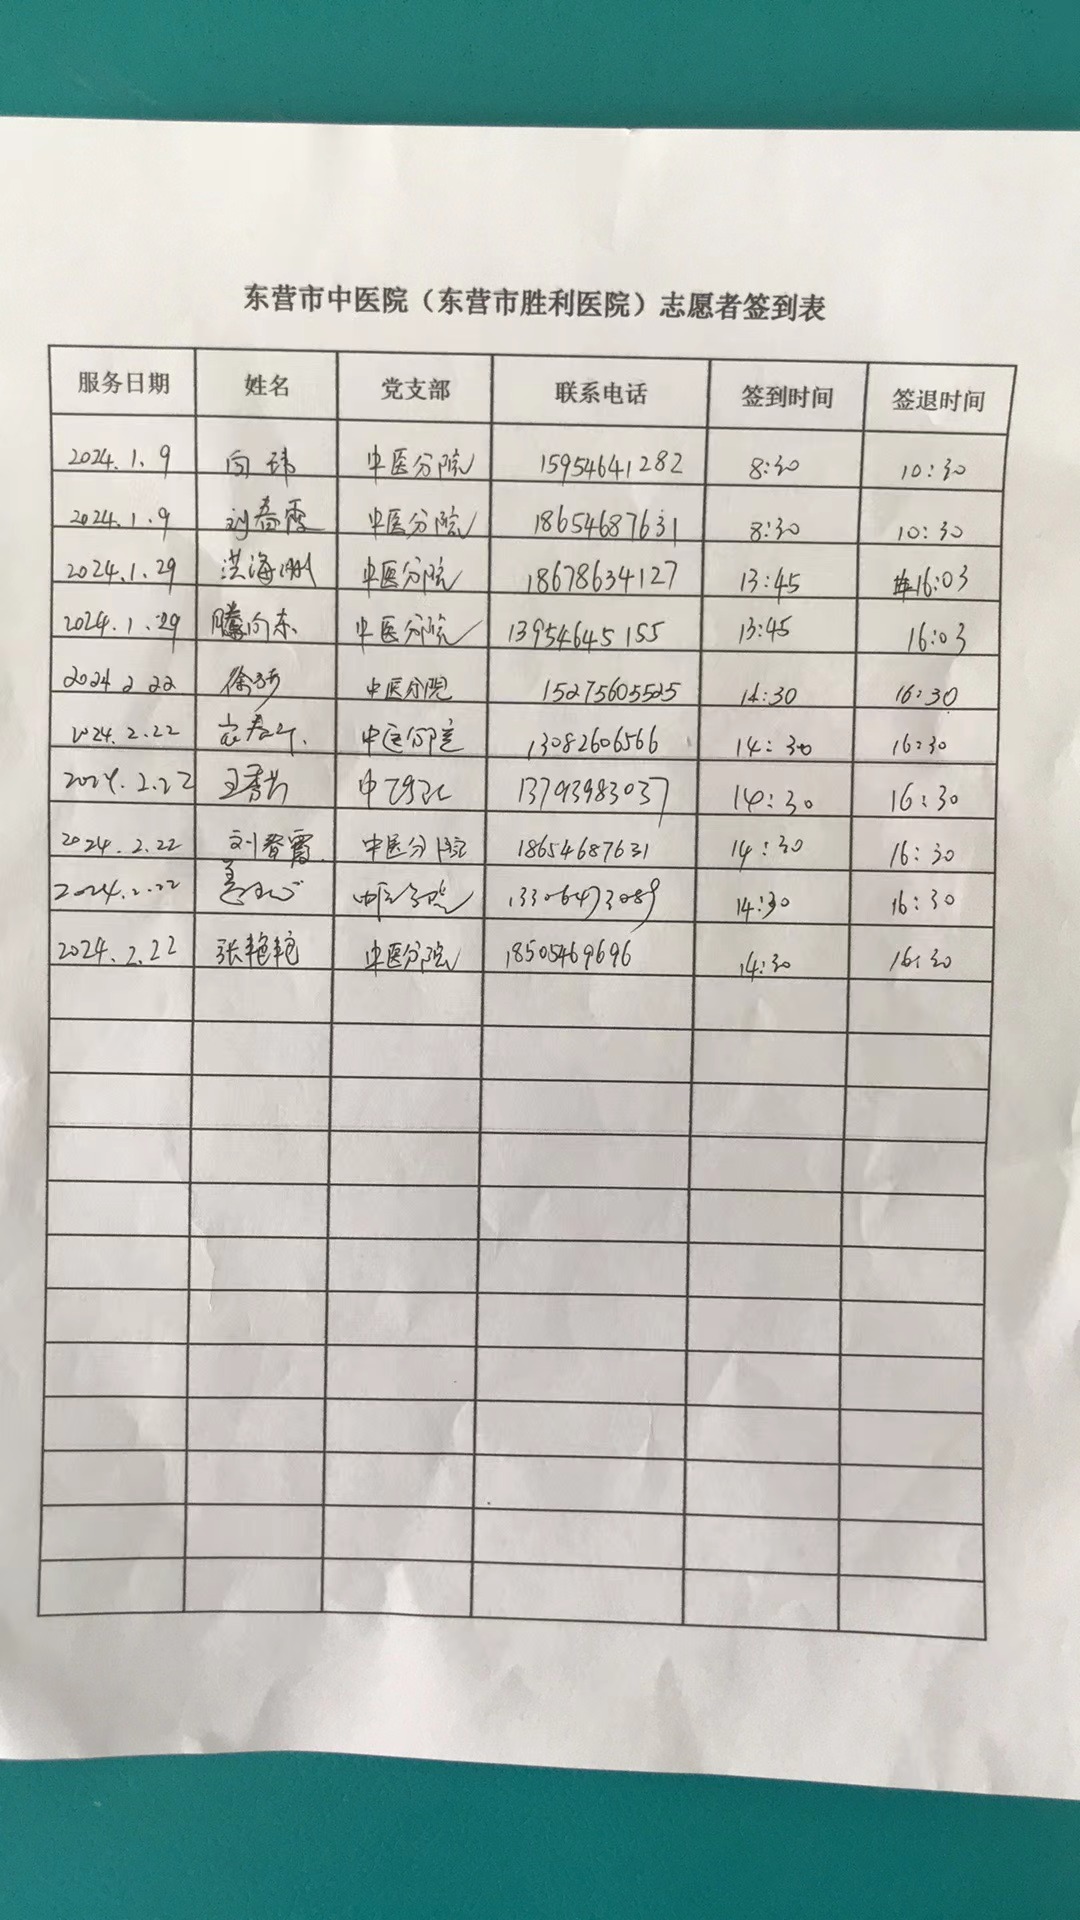 东营市中医院（东营市胜利医院）志愿者签到表
服务日期 姓名 党支部 联系电话 签到时间 签退时间
2024.1.9 向玮 中医分院 15954641282 8:30 10:30
2024.1.9 刘春霞 中医分院 18654687631 8:30 10:30
2024.1.29 洪海洲 中医分院 18678634127 13:45 16:03
2024.1.29 滕向东 中医分院 13954645155 13:45 16:03
2024 2 22 徐 中医分院 15275605525 14:30 16:30
2024.2.22 中医分院 13082606566 14:30 16:30
2024.2.22 王秀芳 中 13793983037 14:30 16:30
2024.2.22 刘春霞 中医分院 18654687631 14:30 16:30
2024.2.22 中医分院 13306473089 14:30 16:30
2024.2.22 张艳艳 中医分院 18505469696 14:30 16:30